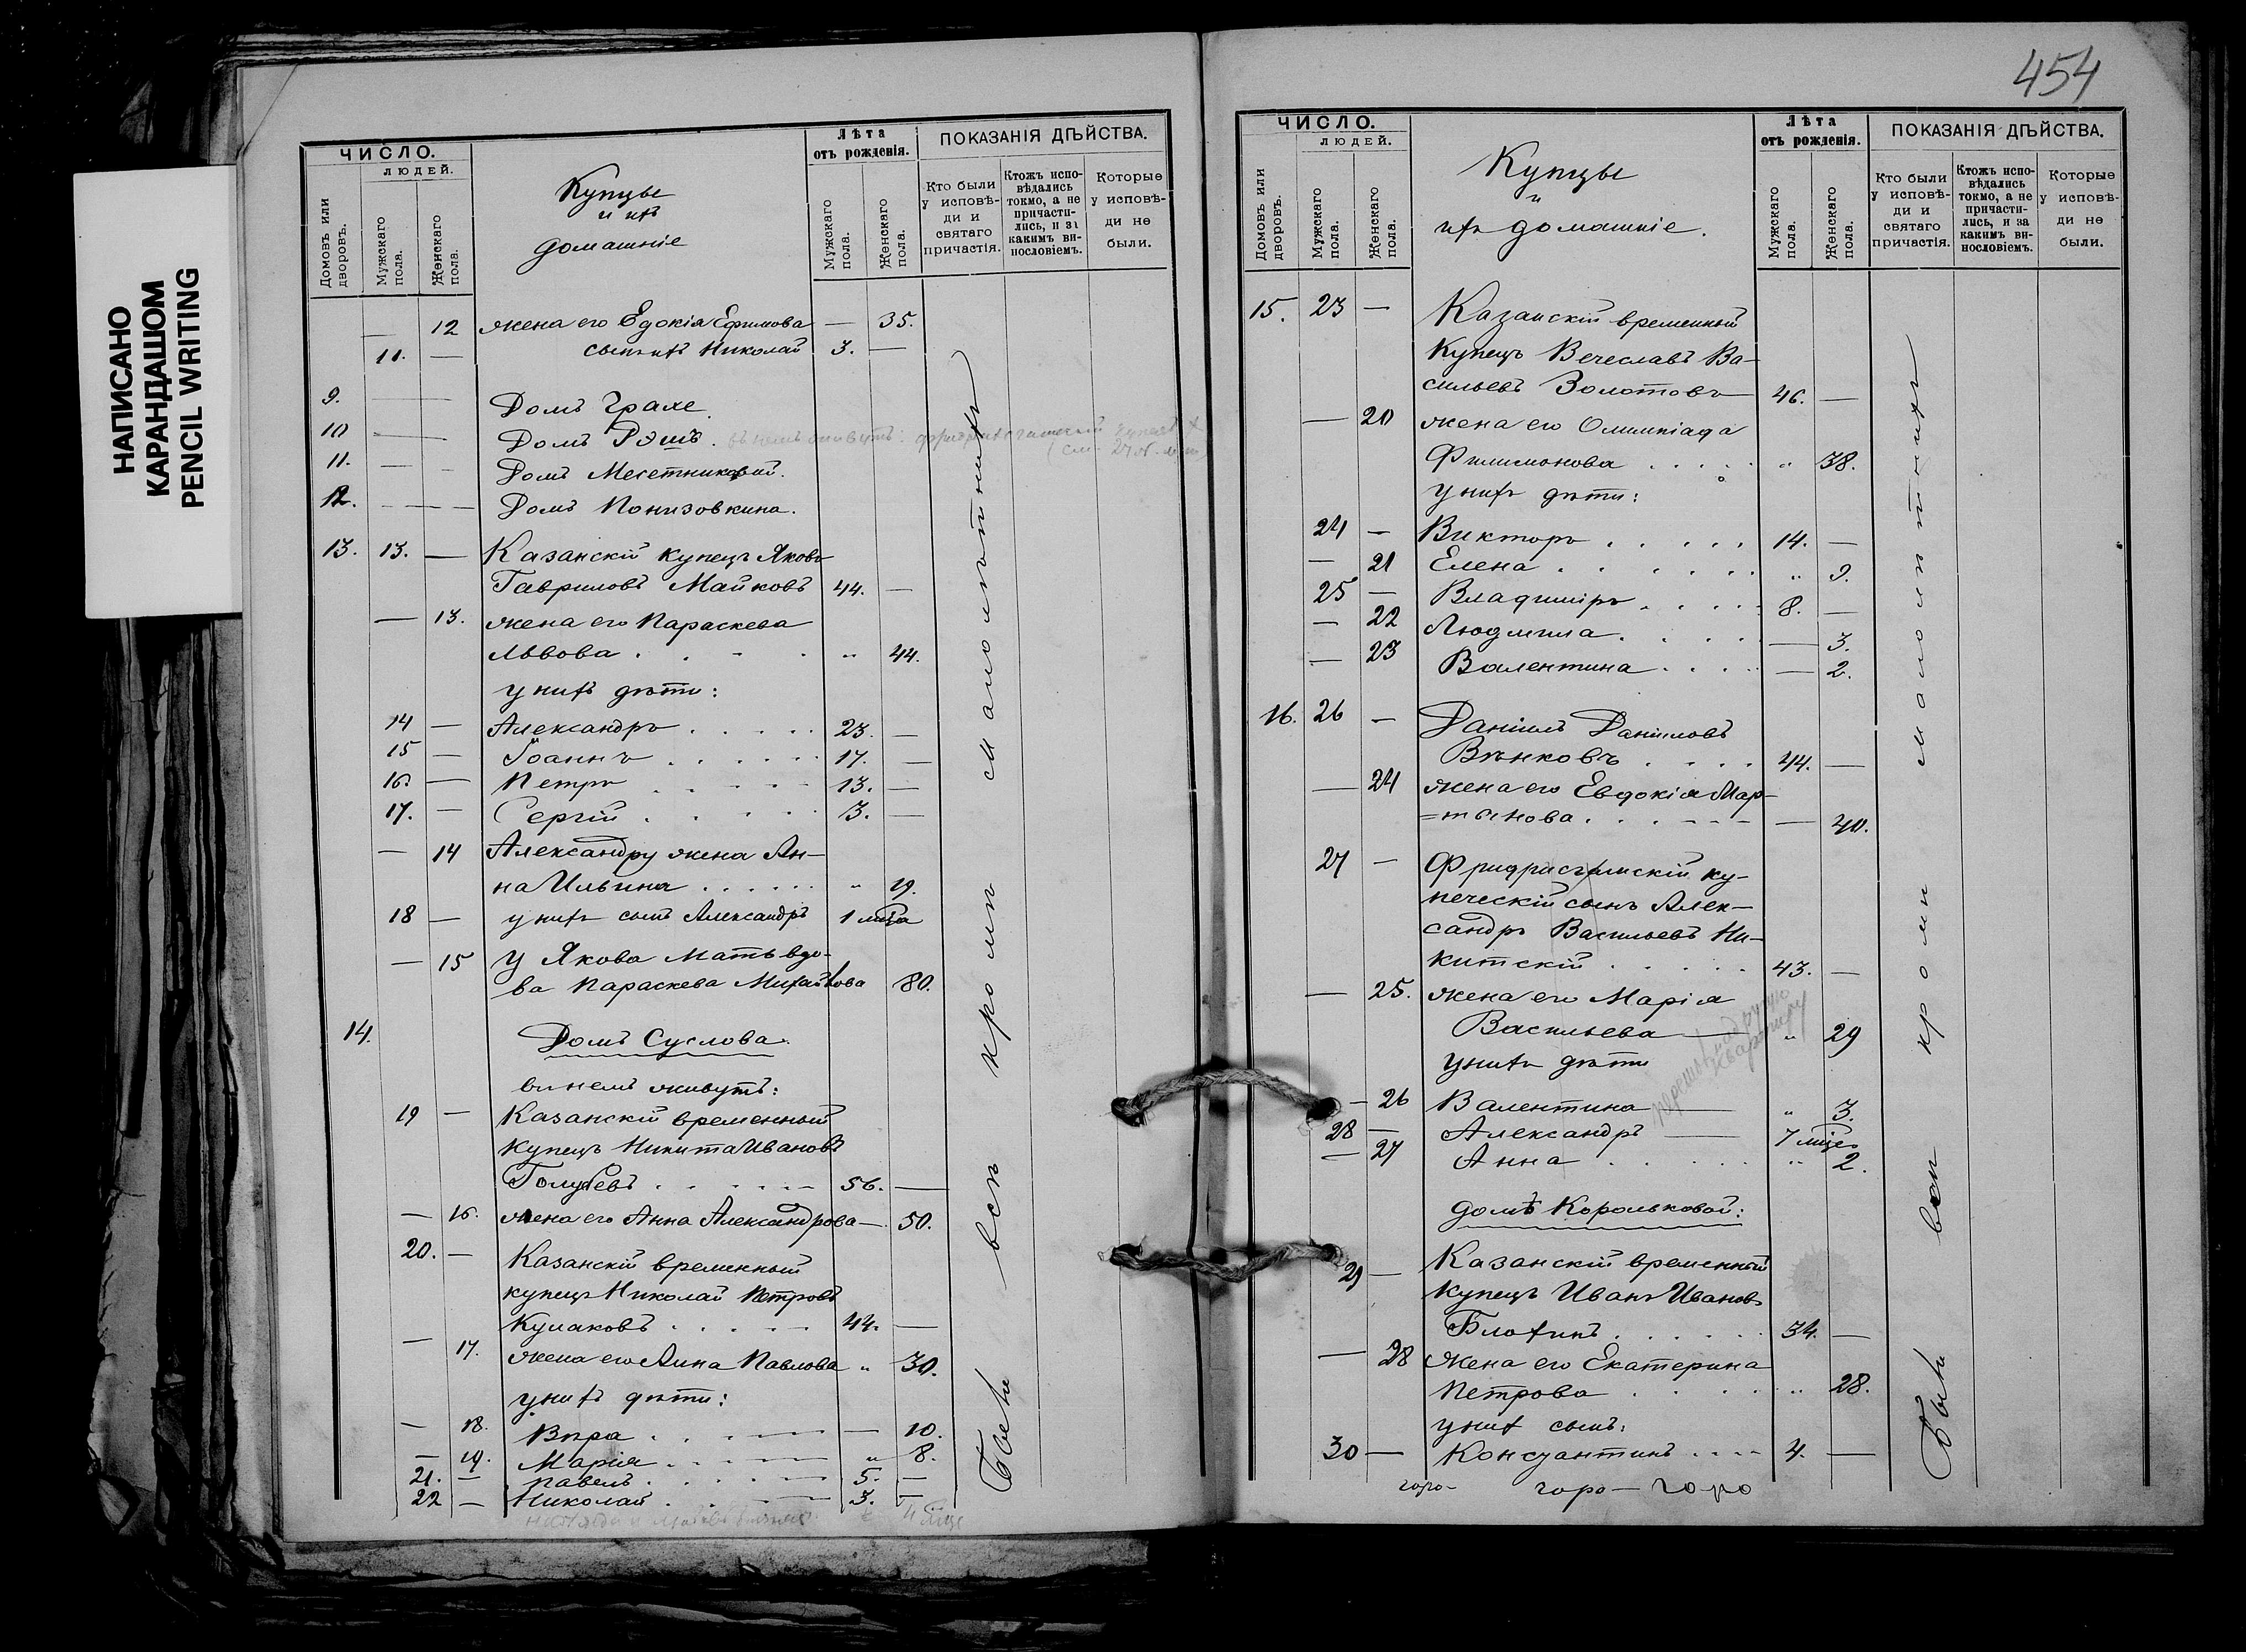 НАПИСАНО
КАРАНДАШОМ
PENCIL WRITING
ЧИСЛО.
ЛЮДЕЙ.
Домовъ или дворовъ.
Мужскаго пола.
Женскаго пола.
Купцы
и ихъ
домашніе
Лѣта
отъ рожденія.
Мужскаго пола.
Женскаго пола.
ПОКАЗАНІЯ ДѢЙСТВА.
Кто были у исповѣди и святаго причастія.
Ктожъ исповѣдались токмо, а не причастились, и за какимъ винословіемъ.
Которые у исповѣди не были.
— 12 жена его Едокія Ефимова — 35.
11. — сынъ ихъ Николай 3. —
9. Домъ Грахе.
10 Домъ Рэшъ. въ немъ живутъ:
11. Домъ Месетниковой.
12. Домъ Понизовкина.
13. 13. — Казанскій купецъ Яковъ
Гавриловъ Майковъ 44. —
— 13. жена его Параскева
Львова . . . . " 44.
у нихъ дѣти:
14 — Александръ . . . . . 23. —
15 — Іоаннъ . . . . . . 17. —
16. — Петръ . . . . . 13. —
17. — Сергій . . . . . 3. —
— 14 Александру жена Ан-
на Ильина . . . . . . " 19.
18 — у нихъ сынъ Александръ 1 мѣса
— 15 У Якова мать вдо-
ва Параскева Михайлова 80.
14. Домъ Суслова.
въ немъ живутъ:
19 — Казанскій временный
купецъ Никита Ивановъ
Голубевъ . . . . . . 56. —
— 16. жена его Анна Александрова — 50.
20. — Казанскій временный
купецъ Николай Петровъ
Кулаковъ . . . . . 44. —
— 17. жена его Анна Павлова " 30.
у нихъ дѣти:
— 18. Вѣра . . . — 10.
— 19. Марія . . . " 8.
21. — Павелъ . . . . . 5. —
22 — Николай . . . 3. —
Были всѣ кромѣ малолѣтнихъ
454
ЧИСЛО.
ЛЮДЕЙ.
Домовъ или дворовъ.
Мужскаго пола.
Женскаго пола.
Купцы
и
ихъ домашніе.
Лѣта
отъ рожденія.
Мужскаго пола.
Женскаго пола.
ПОКАЗАНІЯ ДѢЙСТВА.
Кто были у исповѣди и святаго причастія.
Ктожъ исповѣдались токмо, а не причастились, и за какимъ винословіемъ.
Которые у исповѣди не были.
15. 23 — Казанскій временный
Купецъ Вечеславъ Ва-
сильевъ Золотовъ 46. —
— 20 жена его Олимпіада
Филимонова . . . . . " 38.
у нихъ дѣти:
24 — Викторъ . . . . . 14. —
— 21 Елена . . . . . . " 9.
25 — Владиміръ . . . . 8. —
— 22 Людмила . . . . — 3.
— 23 Валентина . . . . — 2.
16. 26 — Даніилъ Даниловъ
Вѣнковъ . . . . 44. —
— 24 жена его Евдокія Мар-
=тынова . . . . . . — 40.
27 — Фридрисгамскій ку-
печескій сынъ Алек-
сандръ Васильевъ Ни-
китскій . . . . . 43. —
— 25. жена его Марія
Васильева — " 29
у нихъ дѣти
— 26 Валентина — " 3.
28 — Александръ — 7 мѣсе
— 27 Анна . . . . . " 2.
домѣ Корольковой:
29 — Казанскій временный
Купецъ Иванъ Ивановъ
Блохинъ . . . . . . 34. —
— 28 жена его Екатерина
Петрова . . . . . " 28.
у них сынъ:
30 — Константинъ . . . . 4. —
Были всѣ кромѣ малолѣтнихъ
на другую
квартиру